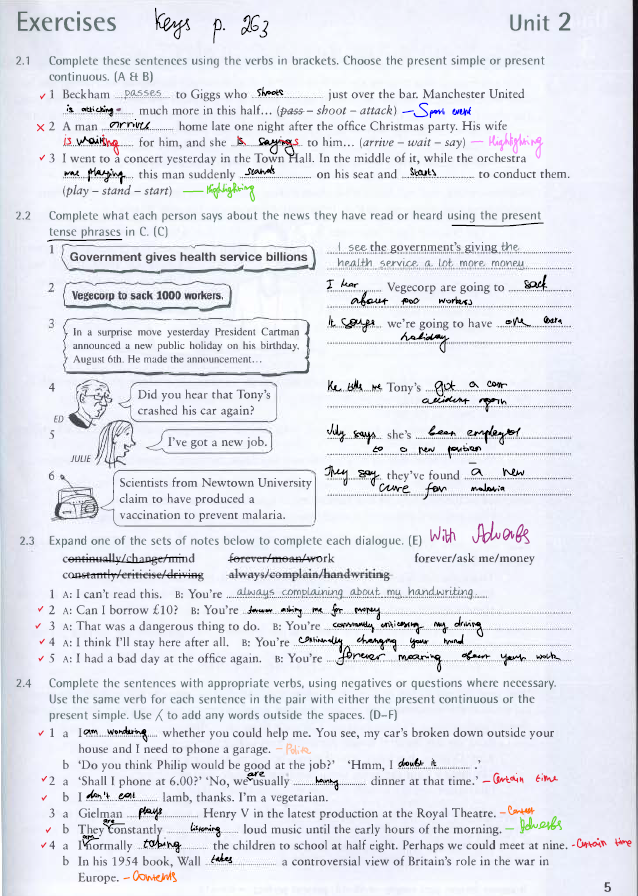 Exercises Keys p. 263 Unit 2
2.1 Complete these sentences using the verbs in brackets. Choose the present simple or present
continuous. (A & B)
✓ 1 Beckham passes to Giggs who shoots just over the bar. Manchester United
is attacking much more in this half… (pass – shoot – attack) – Sport event
✗ 2 A man arrives home late one night after the office Christmas party. His wife
is waiting for him, and she is says to him… (arrive – wait – say) – Highlighting
✓ 3 I went to a concert yesterday in the Town Hall. In the middle of it, while the orchestra
was playing this man suddenly stands on his seat and starts to conduct them.
(play – stand – start) – Highlighting
2.2 Complete what each person says about the news they have read or heard using the present
tense phrases in C. (C)
1 Government gives health service billions I see the government's giving the
health service a lot more money
2 Vegecorp to sack 1000 workers. I hear Vegecorp are going to sack
about 1000 workers
3 In a surprise move yesterday President Cartman
announced a new public holiday on his birthday,
August 6th. He made the announcement…
It says we're going to have one extra
holiday
4 Did you hear that Tony's
crashed his car again?
ED
He tells me Tony's got a car
accident again
5 I've got a new job.
JULIE
July says she's been employed
to a new position
6 Scientists from Newtown University
claim to have produced a
vaccination to prevent malaria.
They say they've found a new
cure for malaria
2.3 Expand one of the sets of notes below to complete each dialogue. (E) With Adverbs
continually/change/mind forever/moan/work forever/ask me/money
constantly/criticise/driving always/complain/handwriting
1 A: I can't read this. B: You're always complaining about my handwriting
✓ 2 A: Can I borrow £10? B: You're forever asking me for money
✓ 3 A: That was a dangerous thing to do. B: You're constantly criticising my driving
✓ 4 A: I think I'll stay here after all. B: You're continually changing your mind
✓ 5 A: I had a bad day at the office again. B: You're forever moaning about your work
2.4 Complete the sentences with appropriate verbs, using negatives or questions where necessary.
Use the same verb for each sentence in the pair with either the present continuous or the
present simple. Use ⁁ to add any words outside the spaces. (D–F)
✓ 1 a I am wondering whether you could help me. You see, my car's broken down outside your
house and I need to phone a garage. – Polite
b 'Do you think Philip would be good at the job?' 'Hmm, I doubt it .'
✓ 2 a 'Shall I phone at 6.00?' 'No, we are usually having dinner at that time.' – Certain time
✓ b I don't eat lamb, thanks. I'm a vegetarian.
3 a Gielman plays Henry V in the latest production at the Royal Theatre. – Content
✓ b They are constantly listening loud music until the early hours of the morning. – Adverbs
✓ 4 a I am normally taking the children to school at half eight. Perhaps we could meet at nine. – Certain time
b In his 1954 book, Wall takes a controversial view of Britain's role in the war in
Europe. – Contents
5